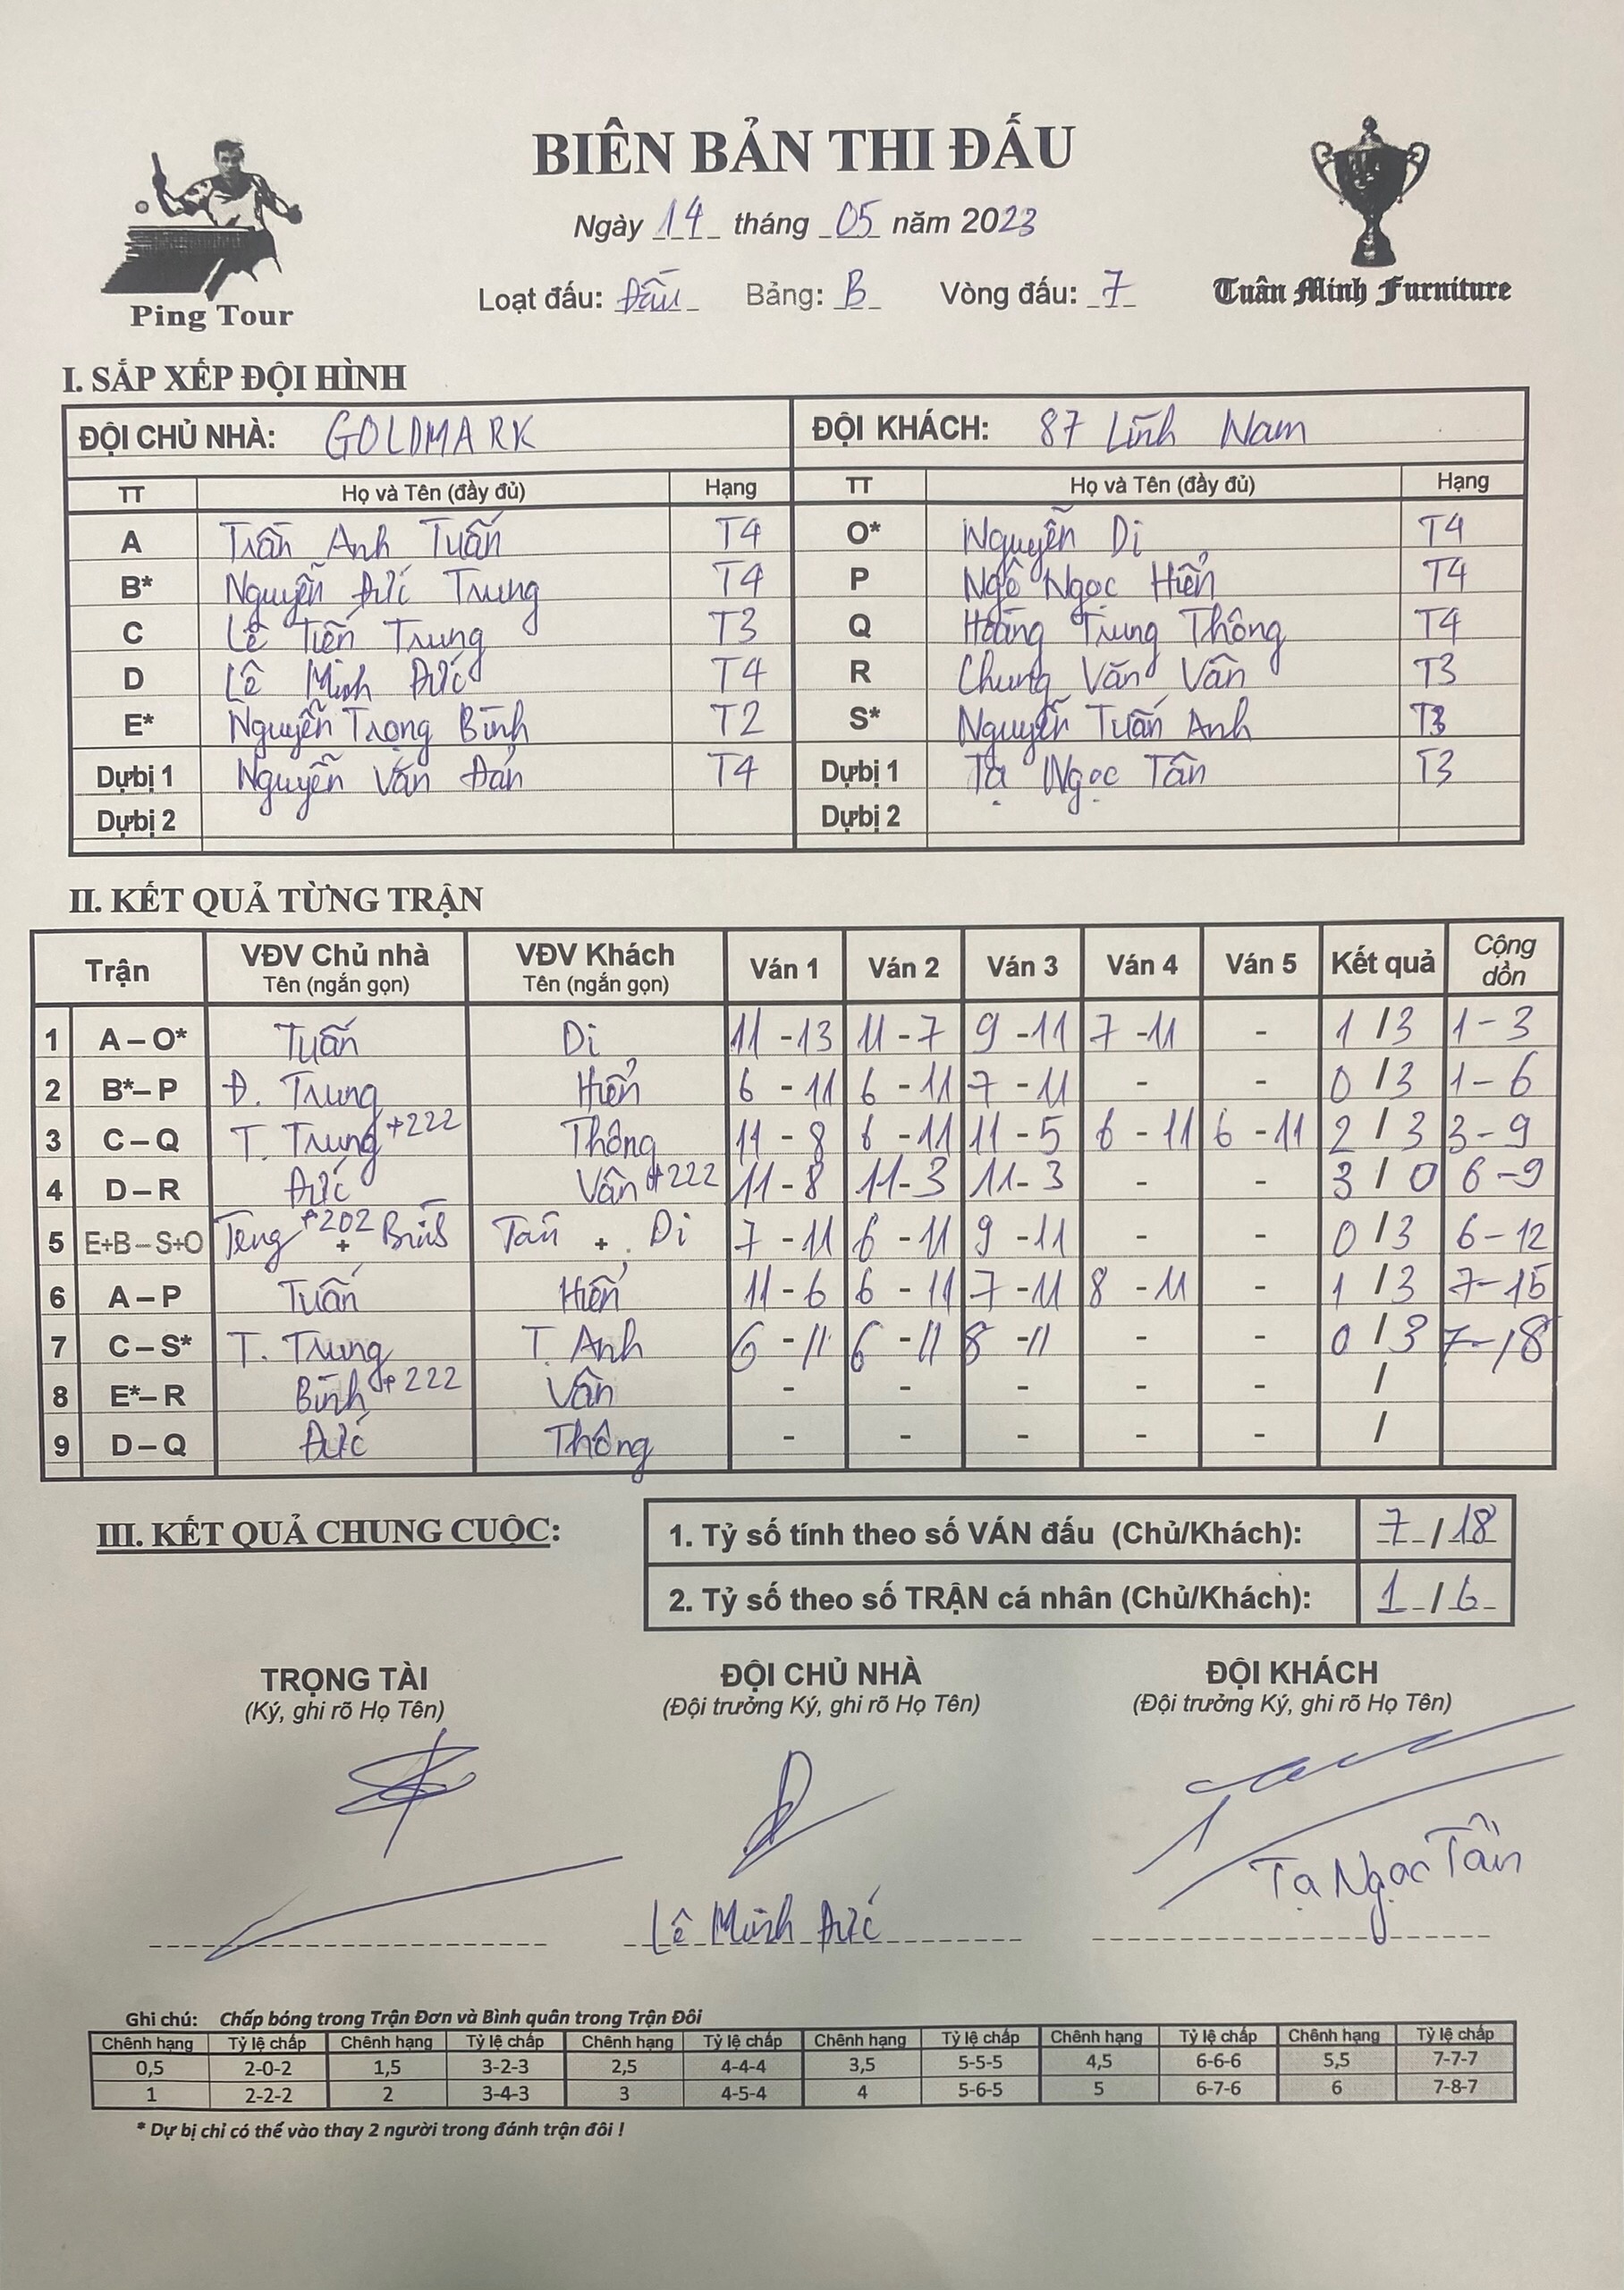 BIÊN BẢN THI ĐẤU
Ngày 14 tháng 05 năm 2023
Loạt đấu: Đấu Bảng: B Vòng đấu: 7
Ping Tour
Tuân Minh Furniture
I. SẮP XẾP ĐỘI HÌNH
ĐỘI CHỦ NHÀ: GOLDMARK ĐỘI KHÁCH: 87 Lĩnh Nam
TT Họ và Tên (đầy đủ) Hạng TT Họ và Tên (đầy đủ) Hạng
A Trần Anh Tuấn T4 O* Nguyễn Di T4
B* Nguyễn Đức Trung T4 P Ngô Ngọc Hiển T4
C Lê Tiến Trung T3 Q Hoàng Trung Thông T4
D Lê Minh Đức T4 R Chung Văn Vân T3
E* Nguyễn Trọng Bình T2 S* Nguyễn Tuấn Anh T3
Dự bị 1 Nguyễn Văn Đản T4 Dự bị 1 Tạ Ngọc Tân T3
Dự bị 2 Dự bị 2
II. KẾT QUẢ TỪNG TRẬN
Trận VĐV Chủ nhà Tên (ngắn gọn) VĐV Khách Tên (ngắn gọn) Ván 1 Ván 2 Ván 3 Ván 4 Ván 5 Kết quả Cộng dồn
1 A – O* Tuấn Di 11 - 13 11 - 7 9 - 11 7 - 11 - 1 / 3 1 - 3
2 B* – P Đ. Trung Hiển 6 - 11 6 - 11 7 - 11 - - 0 / 3 1 - 6
3 C – Q T. Trung +222 Thông 11 - 8 6 - 11 11 - 5 6 - 11 6 - 11 2 / 3 3 - 9
4 D – R Đức Vân +222 11 - 8 11 - 3 11 - 3 - - 3 / 0 6 - 9
5 E+B – S+O +202 + Tân + Di 7 - 11 6 - 11 9 - 11 - - 0 / 3 6 - 12
6 A – P Tuấn Hiển 11 - 6 6 - 11 7 - 11 8 - 11 - 1 / 3 7 - 15
7 C – S* T. Trung T. Anh 6 - 11 6 - 11 8 - 11 - - 0 / 3 7 - 18
8 E* – R Bình +222 Vân - - - - - /
9 D – Q Đức Thông - - - - - /
III. KẾT QUẢ CHUNG CUỘC:
1. Tỷ số tính theo số VÁN đấu (Chủ/Khách): 7 / 18
2. Tỷ số theo số TRẬN cá nhân (Chủ/Khách): 1 / 6
TRỌNG TÀI ĐỘI CHỦ NHÀ ĐỘI KHÁCH
(Ký, ghi rõ Họ Tên) (Đội trưởng Ký, ghi rõ Họ Tên) (Đội trưởng Ký, ghi rõ Họ Tên)
Tạ Ngọc Tân
Lê Minh Đức
Ghi chú: Chấp bóng trong Trận Đơn và Bình quân trong Trận Đôi
Chênh hạng Tỷ lệ chấp Chênh hạng Tỷ lệ chấp Chênh hạng Tỷ lệ chấp Chênh hạng Tỷ lệ chấp Chênh hạng Tỷ lệ chấp Chênh hạng Tỷ lệ chấp
0,5 2-0-2 1,5 3-2-3 2,5 4-4-4 3,5 5-5-5 4,5 6-6-6 5,5 7-7-7
1 2-2-2 2 3-4-3 3 4-5-4 4 5-6-5 5 6-7-6 6 7-8-7
* Dự bị chỉ có thể vào thay 2 người trong đánh trận đôi !